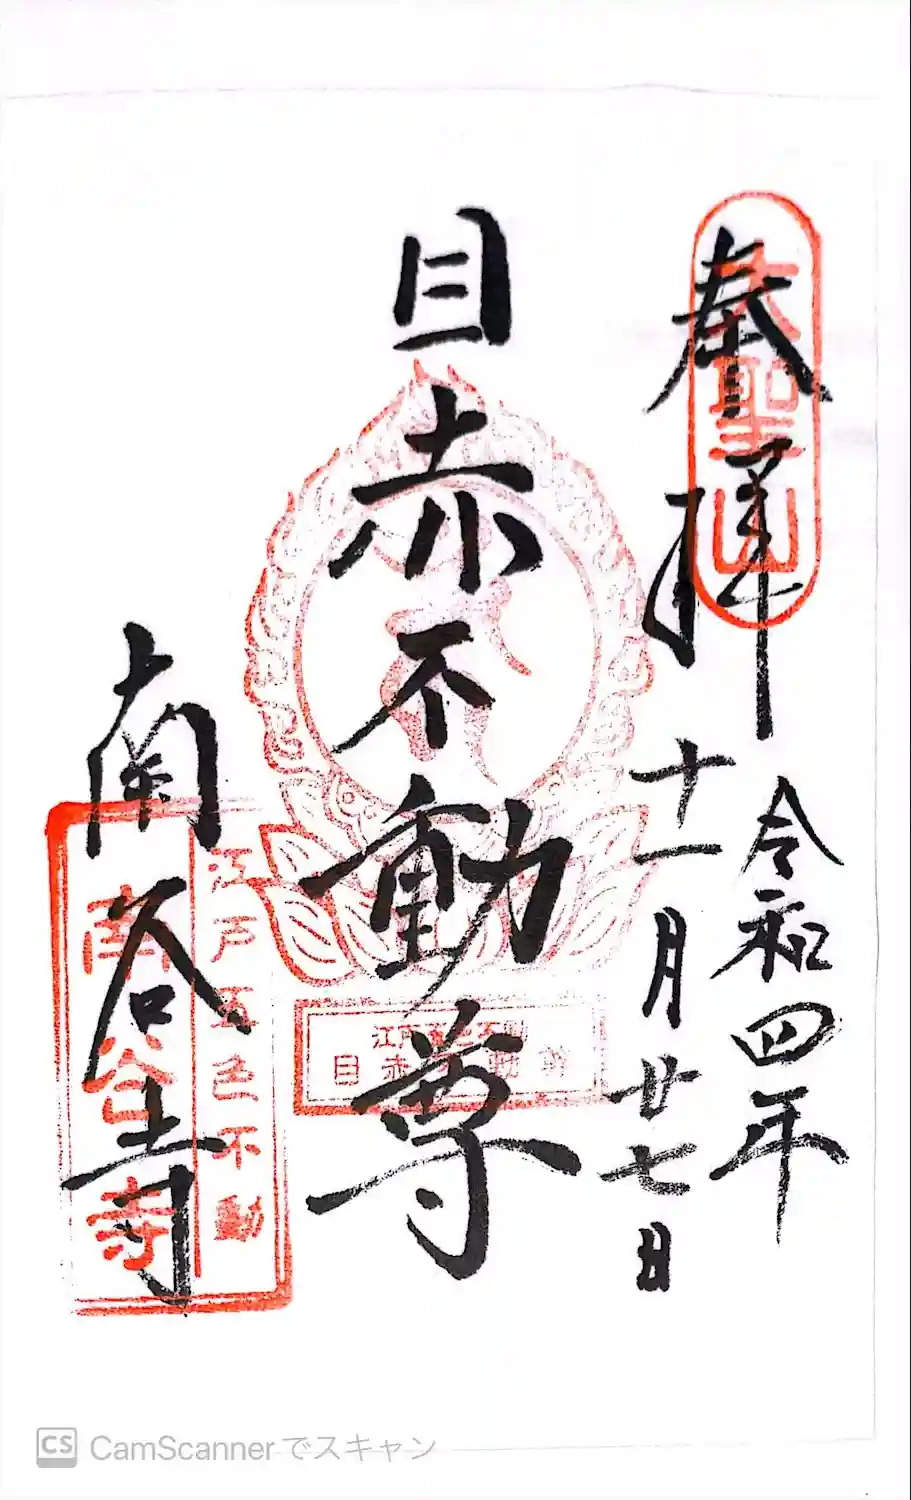 奉拝
大聖山
令和四年
十一月廿七日
目赤不動尊
江戸五色不動
目赤不動尊
南谷寺
江戸五色不動
南谷寺
CS CamScannerでスキャン